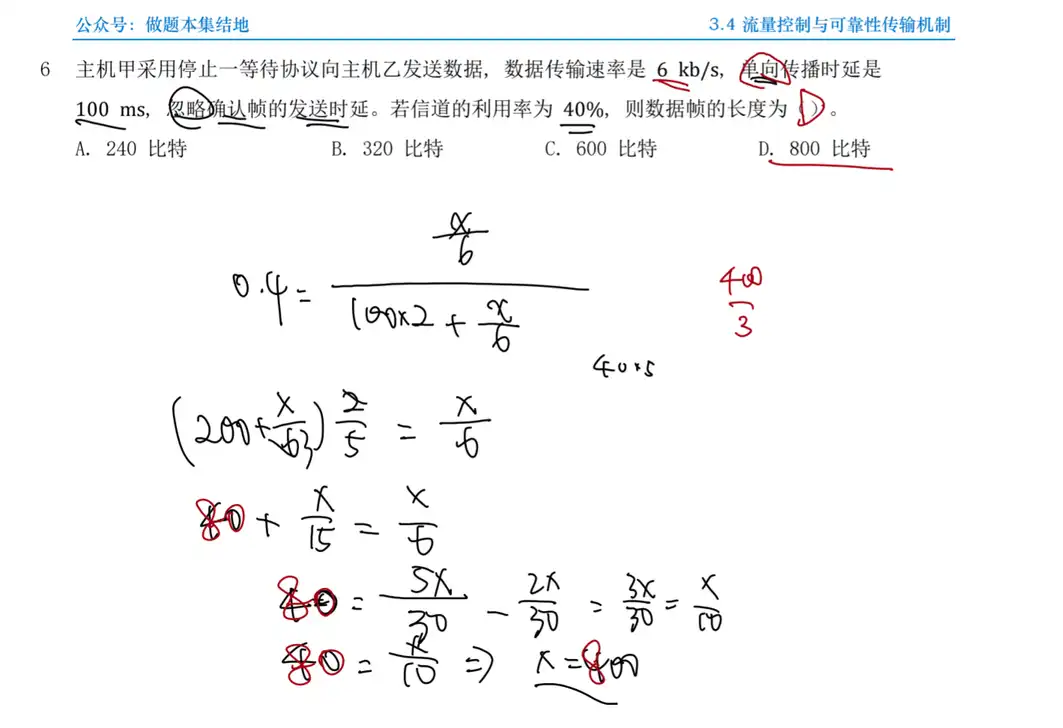 公众号：做题本集结地 3.4 流量控制与可靠性传输机制
6 主机甲采用停止一等待协议向主机乙发送数据，数据传输速率是 6 kb/s，单向传播时延是
100 ms，忽略确认帧的发送时延。若信道的利用率为 40%，则数据帧的长度为（ ）。
A. 240 比特 B. 320 比特 C. 600 比特 D. 800 比特
0.4 = (x/6) / (100×2 + x/6)
400/3
40×5
(200 + x/6) 2/5 = x/6
80 + x/15 = x/6
80 = 5x/30 - 2x/30 = 3x/30 = x/10
80 = x/10 ⇒ x = 800